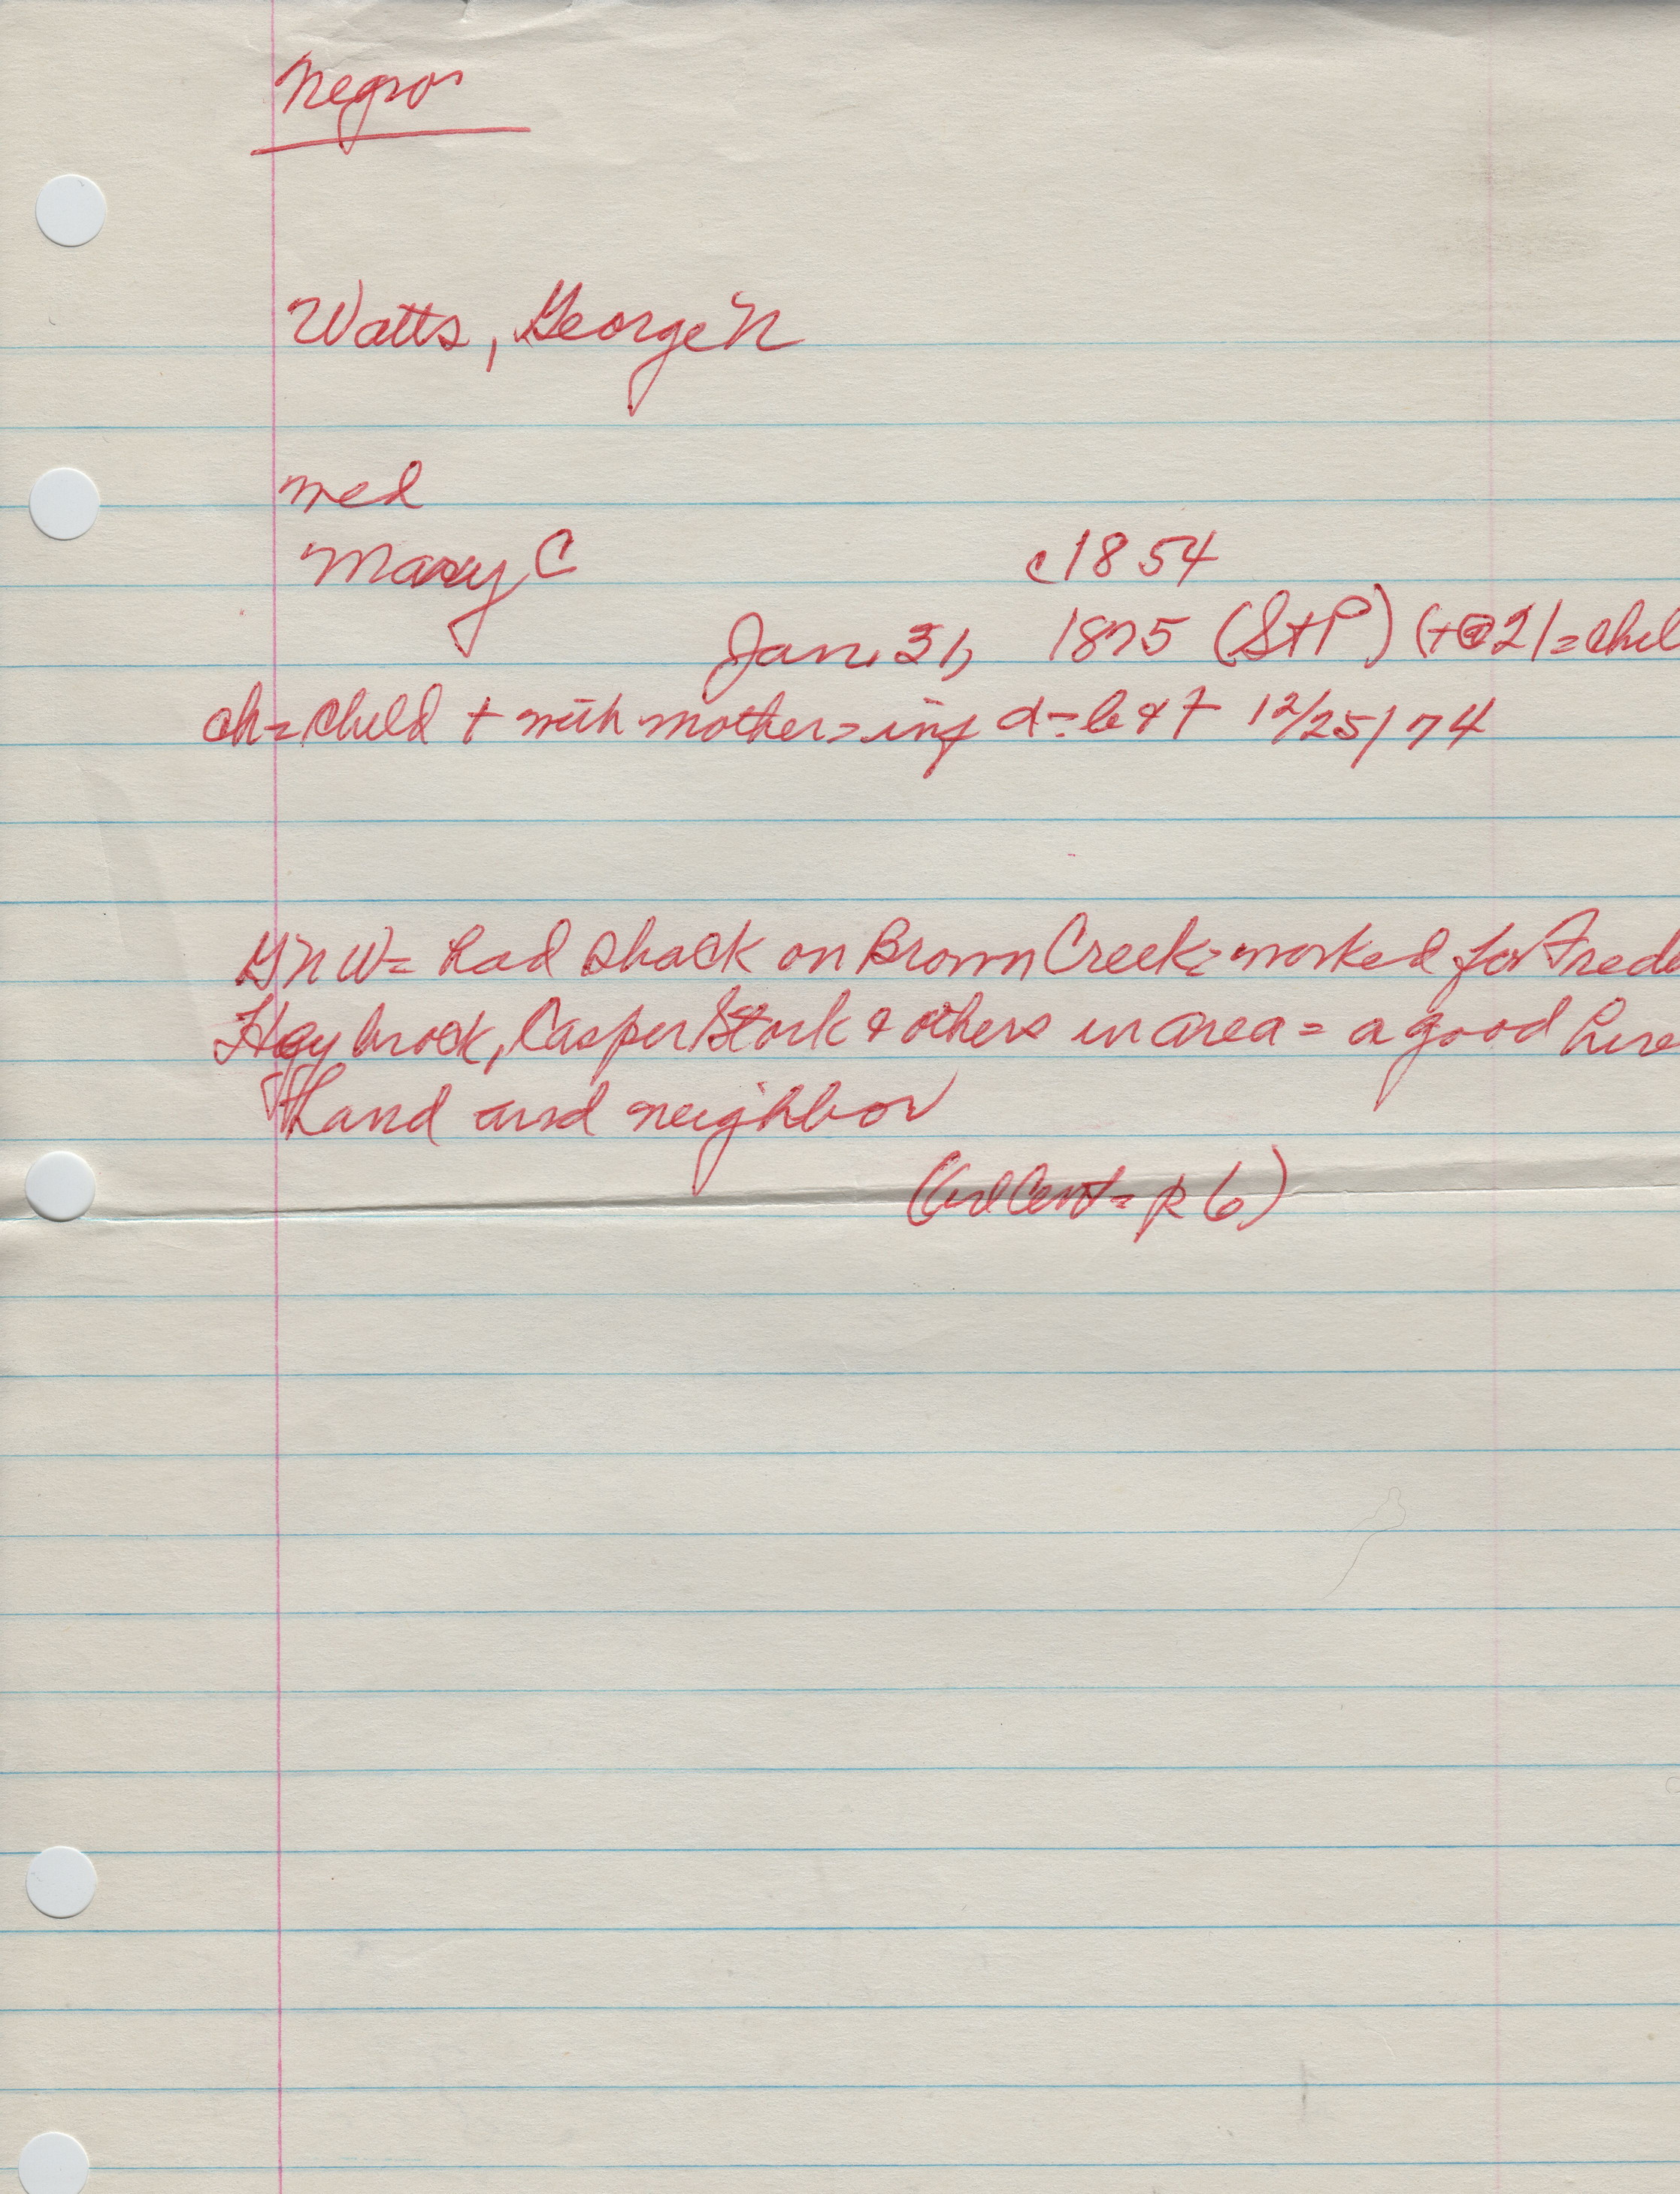 Negros
Watts, George N
med
Mary C
c1854
Jan. 31, 1875 (StP) (+@21=chil
ch=child + with mother=inf d=b & + 12/25/74
GNW= had shack on Brown Creek=worked for Frede
Haybrock, Casper Stork & others in area = a good hire
hand and neighbor
Cent= p 6)